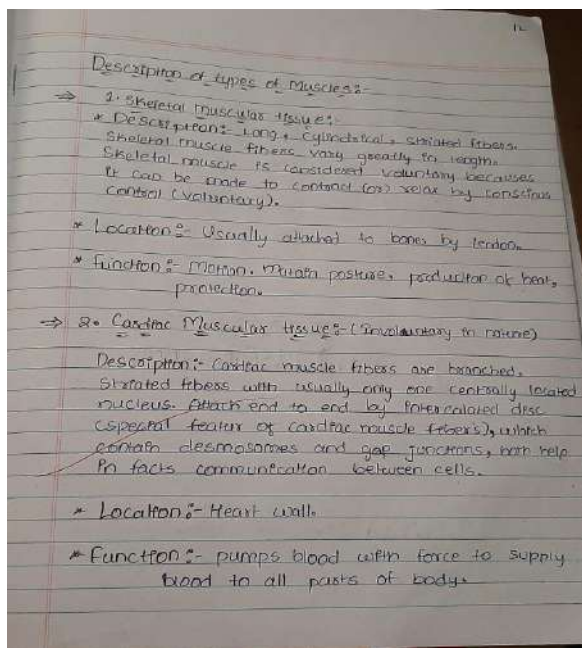 12
Description of types of Muscles:-
⇒ 1. Skeletal muscular tissue:-
* Description:- Long, Cylindrical, striated fibers.
Skeletal muscle fibers vary greatly in length.
Skeletal muscle is considered voluntary becauses
it can be made to contract (or) relax by conscious
control (voluntary).
* Location:- Usually attached to bones by tendon.
* Function:- Motion. posture, production of heat,
protection.
⇒ 2. Cardiac Muscular tissue:- (Involuntary in nature)
Description:- Cardiac muscle fibers are branched.
Striated fibers with usually only one centrally located
nucleus. Attach end to end by intercalated disc
(special featur of cardiac muscle fibers), which
contain desmosomes and gap junctions, both help
in facts communication between cells.
* Location:- Heart wall.
* Function:- pumps blood with force to supply
blood to all parts of body.